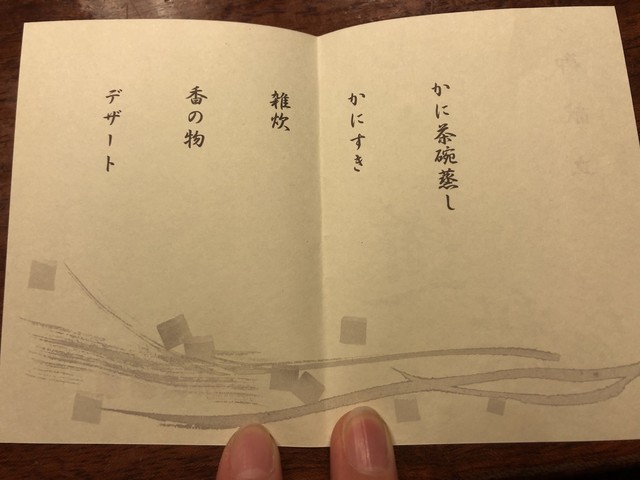 かに茶碗蒸し
かにすき
雑炊
香の物
デザート